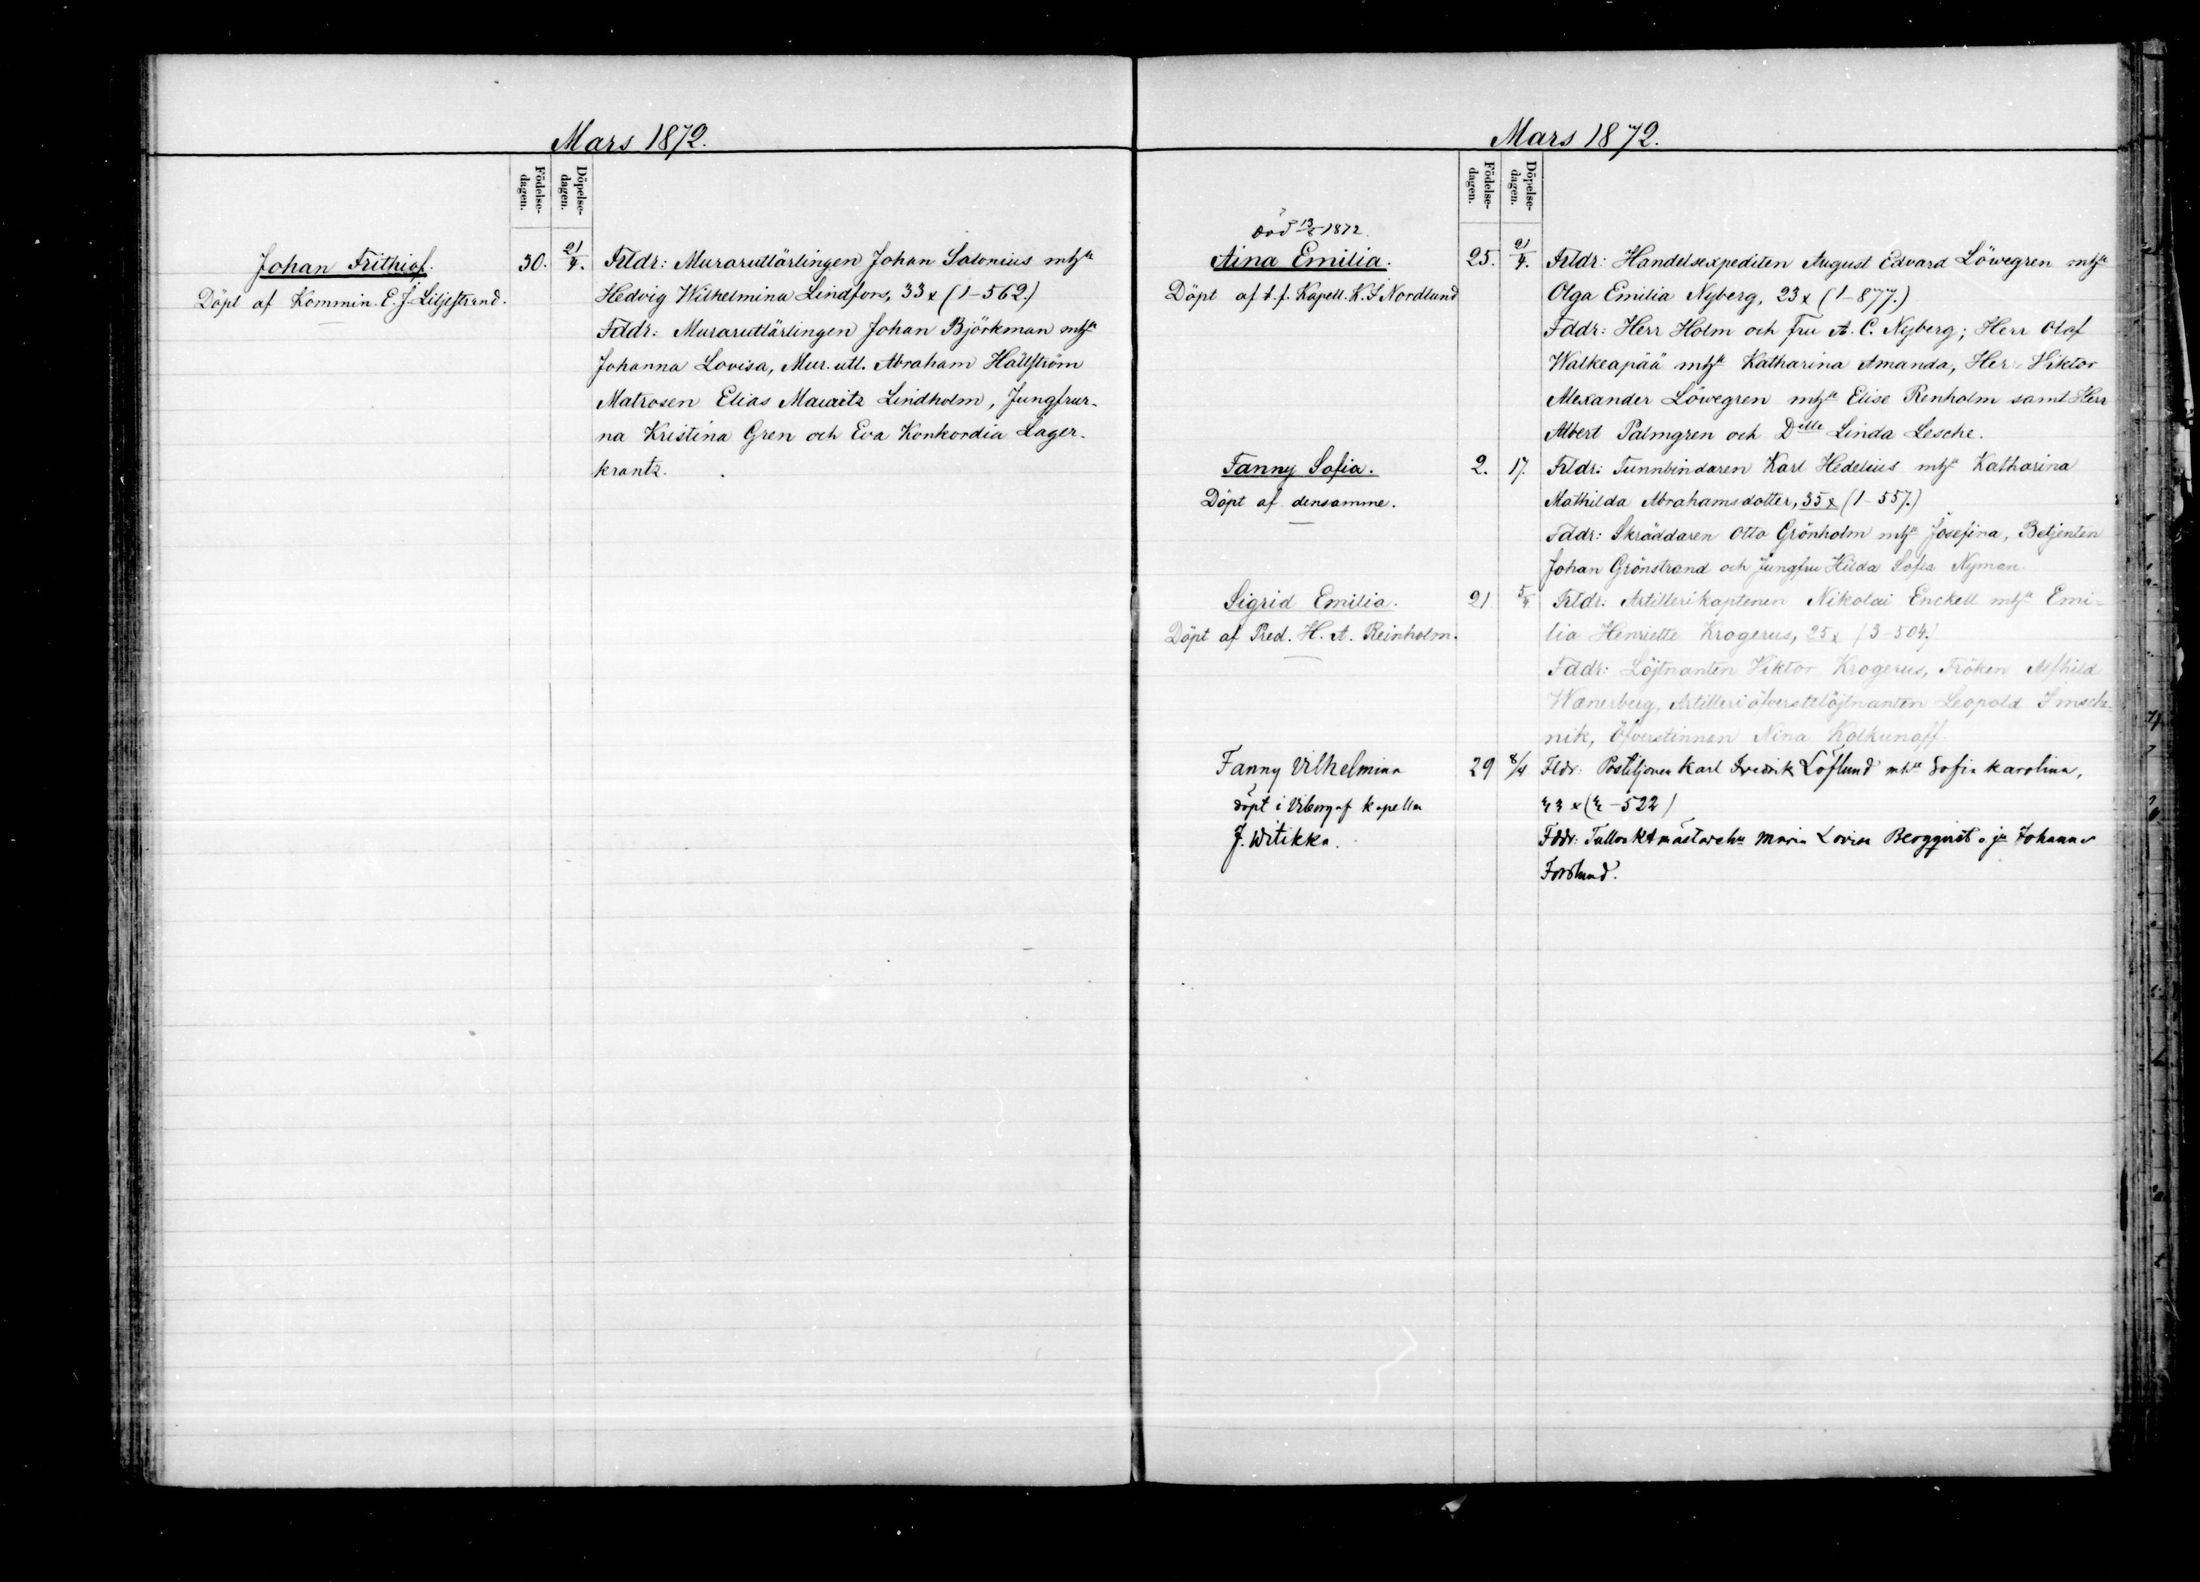 Mars 1872.
Födelse-
dagen.
Döpelse-
dagen.
Johan Frithiof.
Döpt af Kommin. E. J. Liljestrand.
30.
21/4.
Frldr: Murarutlärlingen Johan Salonius mhu
Hedvig Wilhelmina Lindfors, 33 x (1-562.)
Fddr: Murarutlärlingen Johan Björkman mhu
Johanna Lovisa, Mur. utl. Abraham Hallström
Matrosen Elias Mauritz Lindholm, Jungfrur-
na Kristina Gren och Eva Konkordia Lager-
krantz.
Mars 1872.
Födelse-
dagen.
Döpelse-
dagen.
Död 1872.
Aina Emilia.
Döpt af t. f. Kapell. K. J. Nordlund
25.
21/4.
Frldr: Handelsexpediten August Edvard Löwegren mhu
Olga Emilia Nyberg, 23 x (1-877.)
Fddr: Herr Holm och Fru A. C. Nyberg; Herr Olof
Walkeapää mhu Katharina Amanda, Herr Viktor
Alexander Löwegren mhu Elise Renholm samt Herr
Albert Palmgren och Dlle Linda Lesche.
Fanny Sofia.
Döpt af densamme.
2.
17.
Frldr: Tunnbindaren Karl Hedelius mhu Katharina
Mathilda Abrahamsdotter, 35 x (1-557.)
Fddr: Skräddaren Otto Grönholm mhu Josefina, Betjenten
Johan Grönstrand och Jungfru Hilda Sofia Nyman.
Sigrid Emilia.
Döpt af Pred. H. A. Reinholm.
21
5/4
Frldr: Artillerikaptenen Nikolai Enckell mhu Emi-
lia Henriette Krogerus, 25 x (3-504.)
Fddr: Löjtnanten Viktor Krogerus, Fröken Alfhild
Wænerberg, Artilleriöfverstelöjtnanten Leopold Imsche-
nik, Öfverstinnan Nina Kolkunoff.
Fanny Vilhelmina
döpt i Viborg af kapellan
J. Witikka.
29
8/4
Fldr: Postiljonen Karl Fredrik Löflund mhu Sofia Karolina,
x ( -522)
Fddr: Maria Lovisa Bergqvist o. ju Johanna
Forslund.